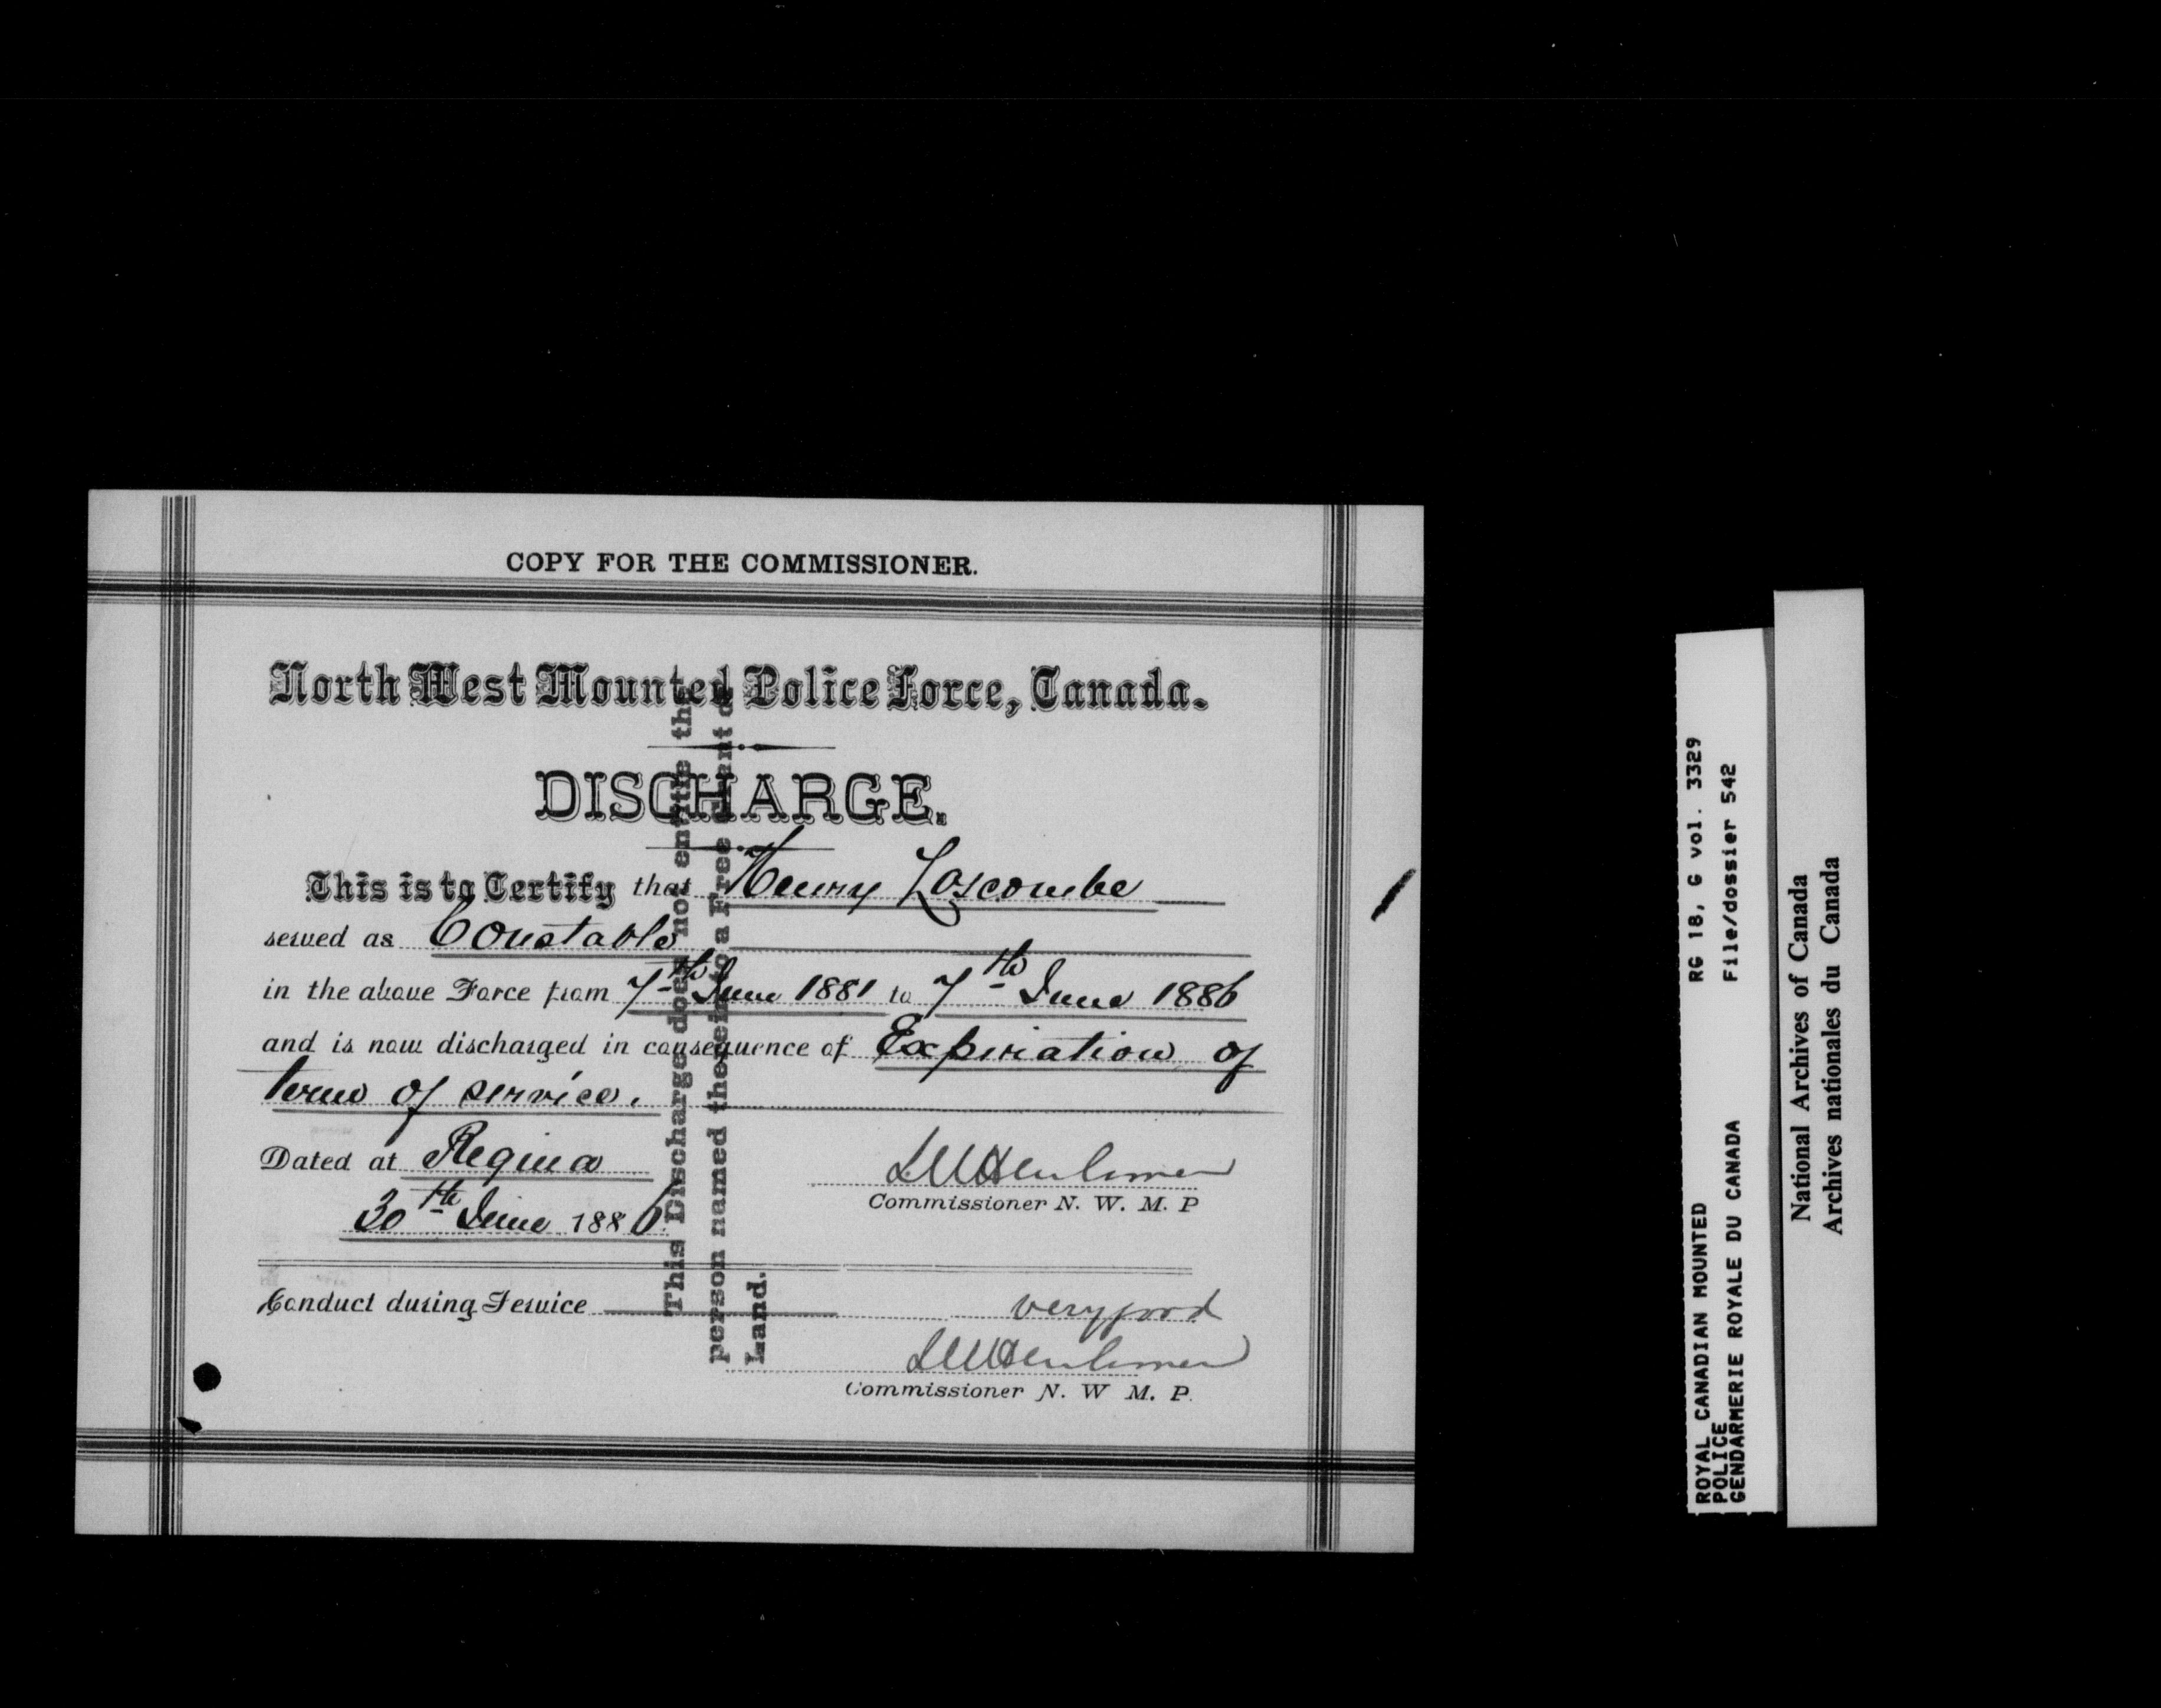 COPY FOR THE COMMISSIONER.
North West Mounted Police Force, Canada.
DISCHARGE.
This is to Certify that Henry Loscombe
served as Constable
in the above Force from 7th June 1881 to 7th June 1886
and is now discharged in consequence of Expiration of
term of service.
Dated at Regina
30th June 1886.
Commissioner N. W. M. P
Conduct during Service very good
Commissioner N. W M. P.
This Discharge does not entitle the
person named therein to a Free Grant of
Land.
ROYAL CANADIAN MOUNTED RG 18, G vol. 3329
POLICE File/dossier 542
GENDARMERIE ROYALE DU CANADA
National Archives of Canada
Archives nationales du Canada